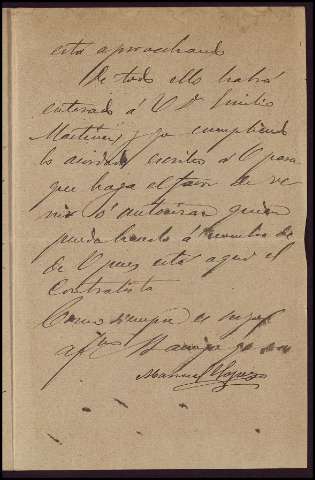 está aprovechando
De todo ello habrá
enterado á V Dn Emilio
Martinez y yo cumpliendo
lo acordado escribo á V para
que haga el favor de ve
nir ó autorizar quien
pueda hacerlo á nombre
de V pues está aquí el
Contratista
Como siempre es suyo
afmo amigo
Manuel